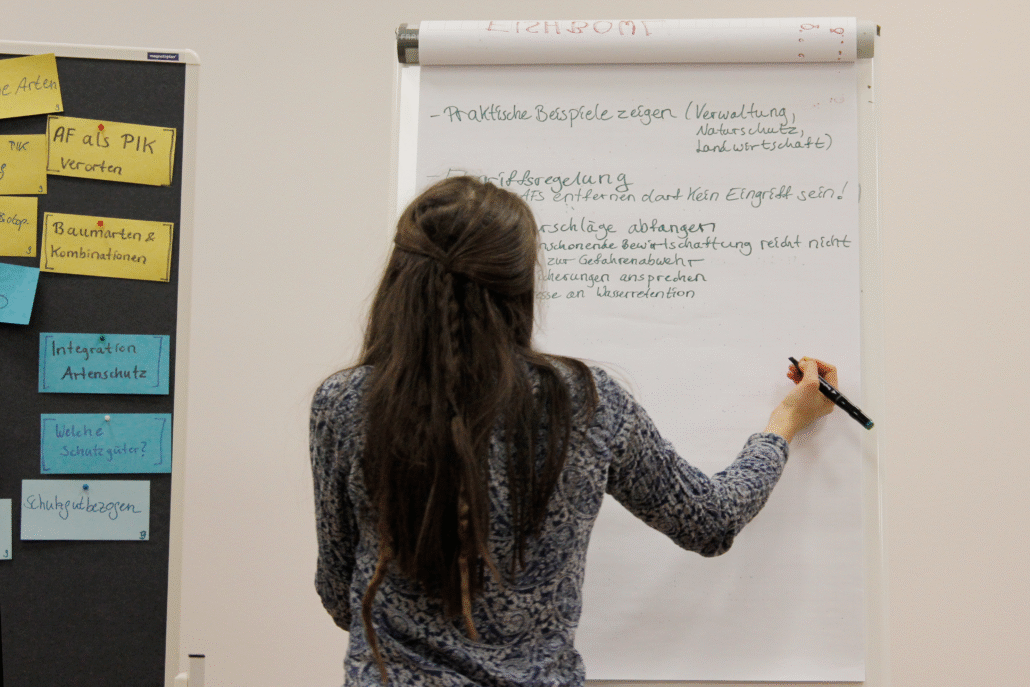 e Arten
AF als PIK
verorten
PIK
g
Baumarten &
Kombinationen
Integration
Artenschutz
Welche
Schutzgüter?
Schutzgutbezogen
FISHBOWL
- Praktische Beispiele zeigen (Verwaltung,
Naturschutz,
Landwirtschaft)
griffsregelung
AFS entfernen darf kein Eingriff sein!
rschläge abfangen
nschonende Bewirtschaftung reicht nicht
zur Gefahrenabwehr
icherungen ansprechen
esse an Wasserretention